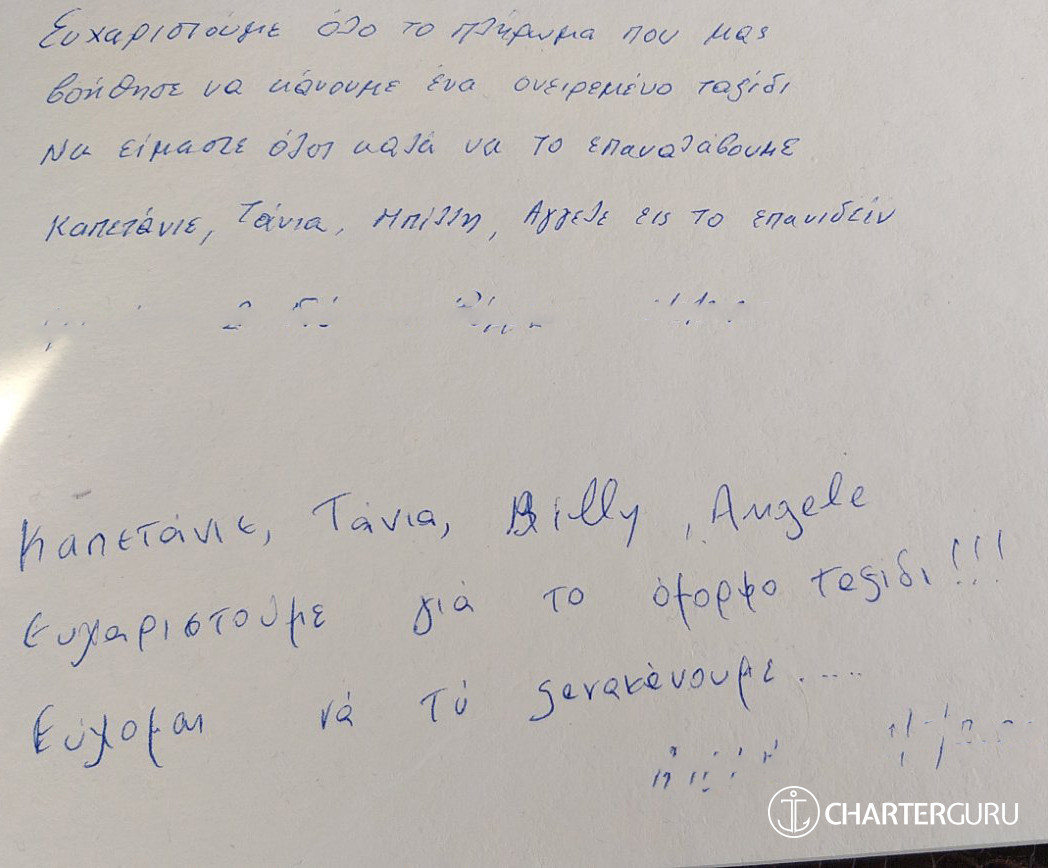 Ευχαριστούμε όλο το πλήρωμα που μας
βοήθησε να κάνουμε ένα ονειρεμένο ταξίδι
Να είμαστε όλοι καλά να το επαναλάβουμε
Καπετάνιε, Τάνια, Μπίλλη, Αγγελε εις το επανιδείν
Καπετάνιε, Τάνια, Billy, Angele
Ευχαριστούμε γιά το όμορφο ταξίδι!!!
Εύχομαι νά τό ξανακάνουμε.....
CHARTERGURU